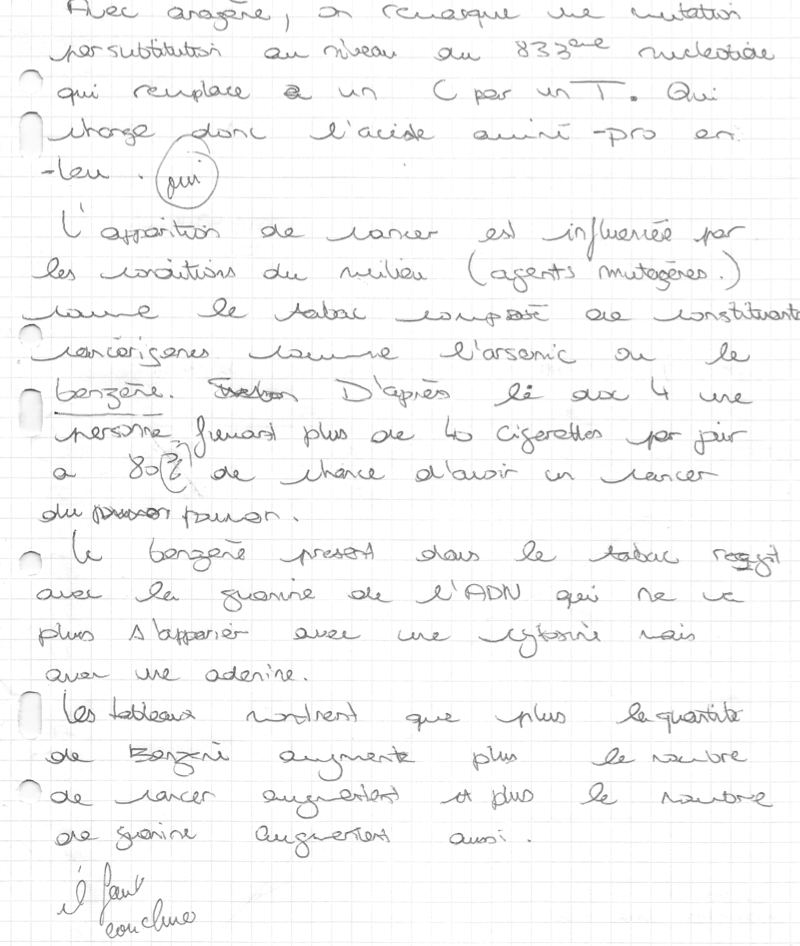 Avec anagène, on remarque une mutation
par substitution au niveau du 833ème nucléotide
qui remplace un C par un T. Qui
change donc l'acide aminé -pro en
-leu. oui
L'apparition de cancer est influencée par
les conditions du milieu (agents mutagènes.)
comme le tabac composé de constituants
cancérigènes comme l'arsenic ou le
benzène. D'après le doc 4 une
personne fumant plus de 40 cigarettes par jour
a 80% de chance d'avoir un cancer
du poumon.
Le benzène present dans le tabac reagit
avec la guanine de l'ADN qui ne va
plus s'apparier avec une cytosine mais
avec une adenine.
Les tableaux montrent que plus la quantité
de benzène augmente plus le nombre
de cancer augmentent et plus le nombre
de guanine augmentent aussi.
il faut
conclure